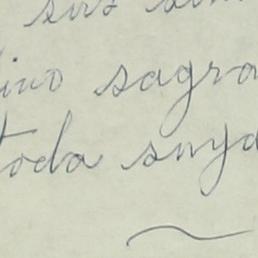 sus
ino sagra
toda suya